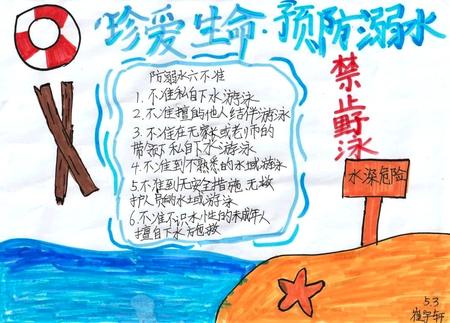 珍爱生命·预防溺水
禁止野泳
防溺水六不准
1.不准私自下水游泳
2.不准擅自与他人结伴游泳
3.不准在无家长或老师的
带领下私自下水游泳
4.不准到不熟悉的水域游泳
5.不准到无安全措施、无救
护人员的水域游泳
6.不准不识水性的未成年人
擅自下水施救
水深危险
5.3
崔宇轩